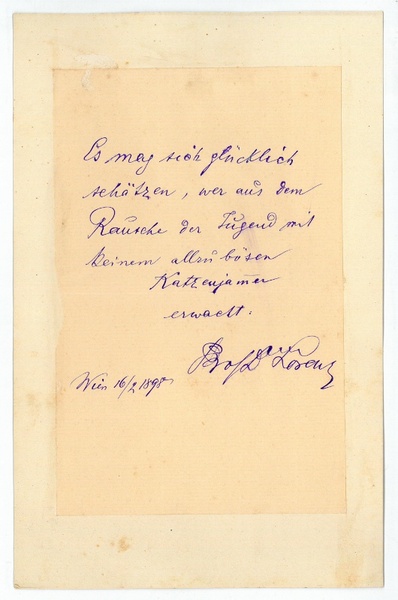 Es mag sich glücklich
schätzen, wer aus dem
Rausche der Jugend mit
keinem allzu bösen
Katzenjam̅er
erwacht.
Prof Dr Lorenz
Wien 16/2 1898